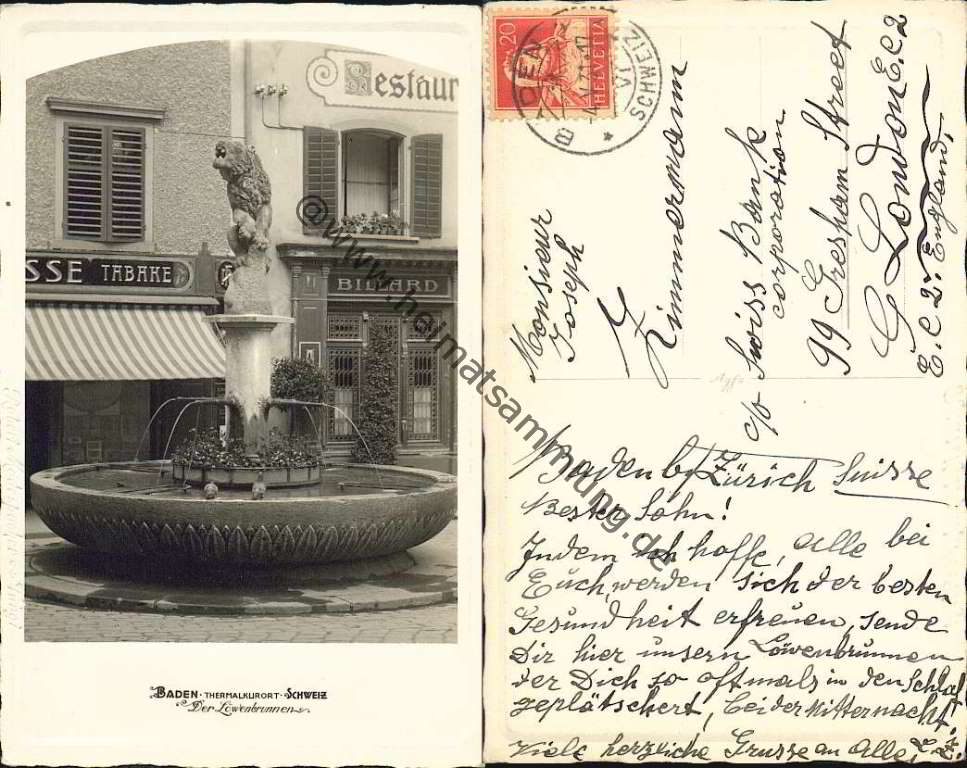 Restaur
SSE TABAKE
BILLARD
BADEN · THERMALKURORT · SCHWEIZ
Der Löwenbrunnen
@ www.heimatsammlung.de
20
HELVETIA
BADEN
SCHWEIZ
Monsieur
Joseph
Zimmermann
c/o Swiss Bank
corporation
99 Gresham Street
London E.C.2
E.C.2. England,
Baden b/Zürich Suisse
Bester Sohn!
Indem ich hoffe, alle bei
Euch, werden sich der besten
Gesundheit erfreuen, sende
Dir hier unsern Löwenbrunnen
der Dich so oftmals in den Schlaf
geplätschert, bei der Mitternacht!
Viele herzliche Grusse an Alle,